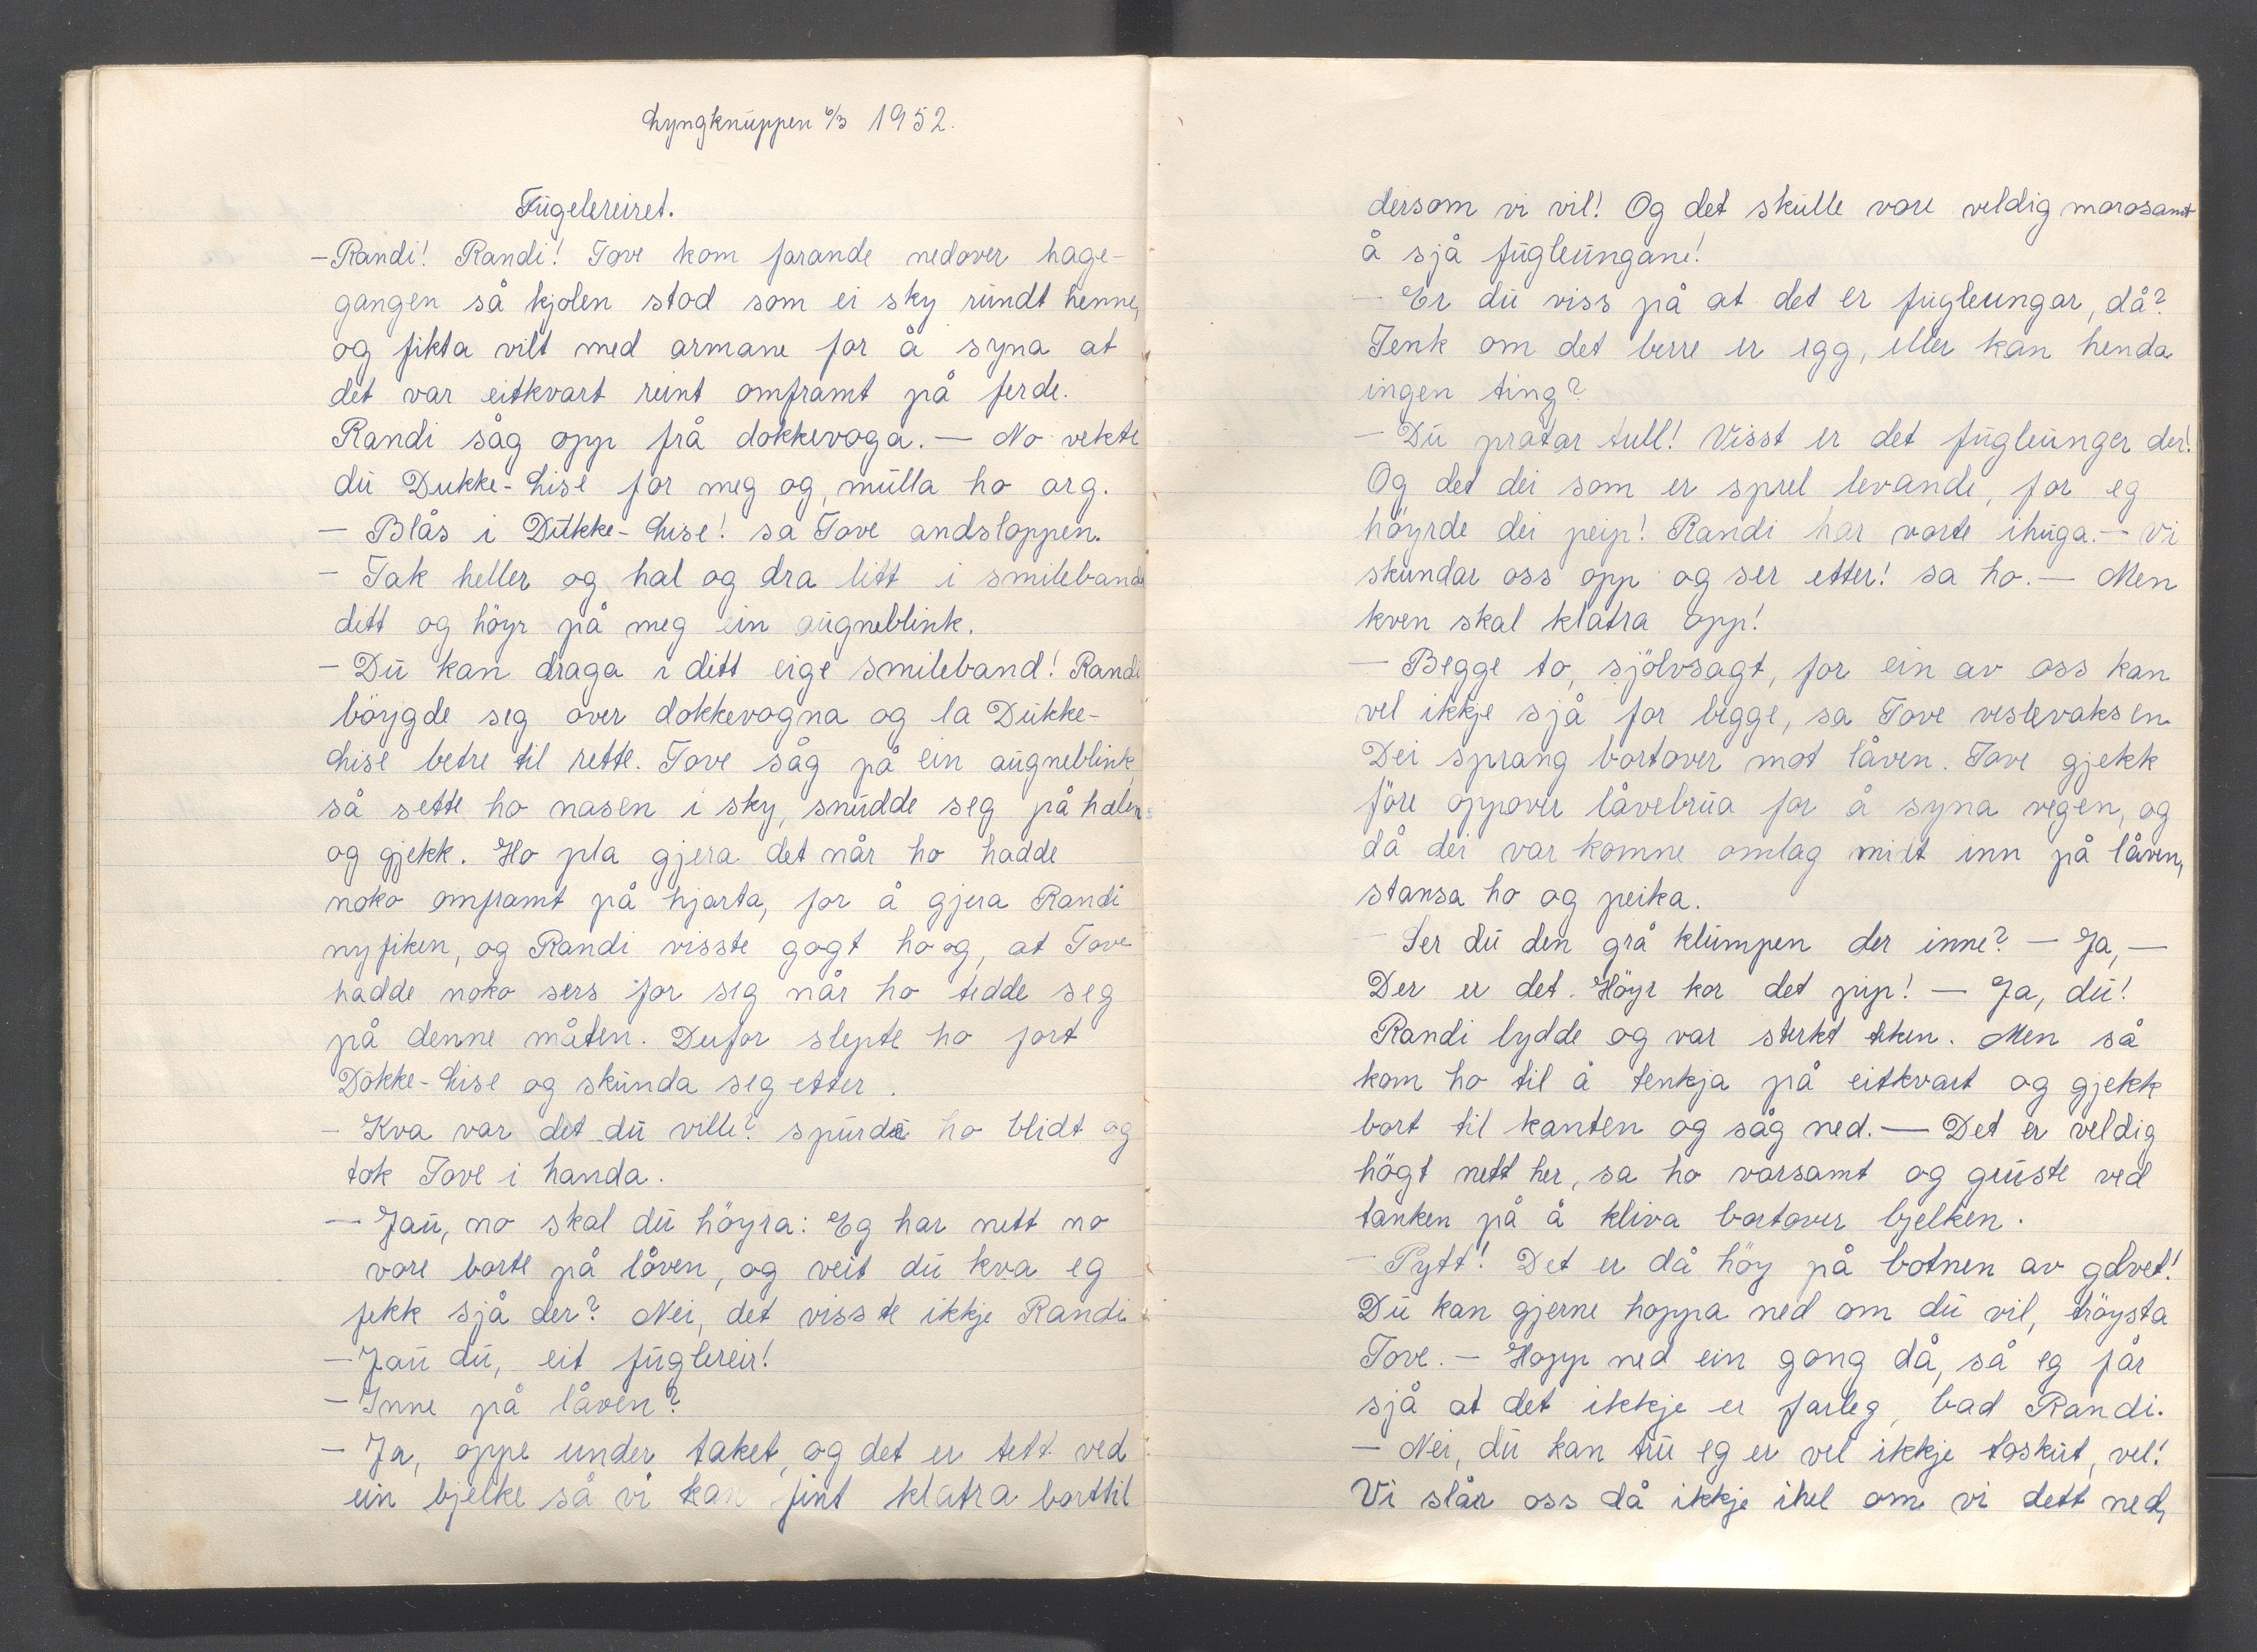 Lyngknuppen 6/3 1952.
Fugelereiret.
- Randi! Randi! Tove kom farande nedover hage-
gangen så kjolen stod som ei sky rundt henne,
og fikta vilt med armane for å syna at
det var eitkvart reint omframt på ferde.
Randi såg opp frå dokkevogna. — No vekte
du Dukke-Lise for meg og, mulla ho arg.
- Blås i Dukke-Lise! sa Tove andsloppen.
- Tak heller og hal og dra litt i smilebande
ditt og höyr på meg ein augneblink.
- Du kan draga i ditt eige smileband! Randi
böygde seg over dokkevogna og la Dukke-
Lise betre til rette. Tove såg på ein augneblink,
så sette ho nasen i sky, snudde seg på hælen
og gjekk. Ho pla gjera det når ho hadde
noko omframt på hjarta, for å gjera Randi
nyfiken, og Randi visste gogt ho og, at Tove
hadde noko sers for seg når ho tedde seg
på denne måten. Derfor slepte ho fort
Dokke-Lise og skunda seg etter.
- Kva var det du ville? spurde ho blidt og
tok Tove i handa.
— Jau, no skal du höyra: Eg har nett no
vore borte på låven, og veit du kva eg
fekk sjå der? Nei, det visste ikkje Randi.
- Jau du, eit fuglereir!
- Inne på låven?
- Ja, oppe under taket, og det er tett ved
ein bjelke så vi kan fint klatra borttil
dersom vi vil! Og det skulle vore veldig morosamt
å sjå fugleungane!
- Er du viss på at det er fugleungar, då?
Tenk om det berre er egg, eller kan henda
ingen ting?
- Du pratar tull! Visst er det fugleunger der!
Og det dei som er sprel levande, for eg
höyrde dei peip! Randi har vorte ihuga. — Vi
skundar oss opp og ser etter! sa ho. — Men
kven skal klatra opp!
— Begge to, sjölvsagt, for ein av oss kan
vel ikkje sjå for begge, sa Tove veslevaksen.
Dei sprang bortover mot låven. Tove gjekk
före oppover låvebrua for å syna vegen, og
då dei var komne omlag mitt inn på låven,
stansa ho og peika.
- Ser du den grå klumpen der inne? — Ja, —
Der er det. Höyr kor det pip! — Ja, du!
Randi lydde og var sterkt teken. Men så
kom ho til å tenkja på eitkvart og gjekk
bort til kanten og såg ned. — Det er veldig
högt nett her, sa ho varsamt og gruste ved
tanken på å kliva bortover bjelken.
- Pytt! Det er då höy på botnen av golvet!
Du kan gjerne hoppa ned om du vil, tröysta
Tove. — Hopp ned ein gong då, så eg får
sjå at det ikkje er farleg, bad Randi.
— Nei, du kan tru eg er vel ikkje toskut, vel!
Vi slår oss då ikkje ihel om vi dett ned,